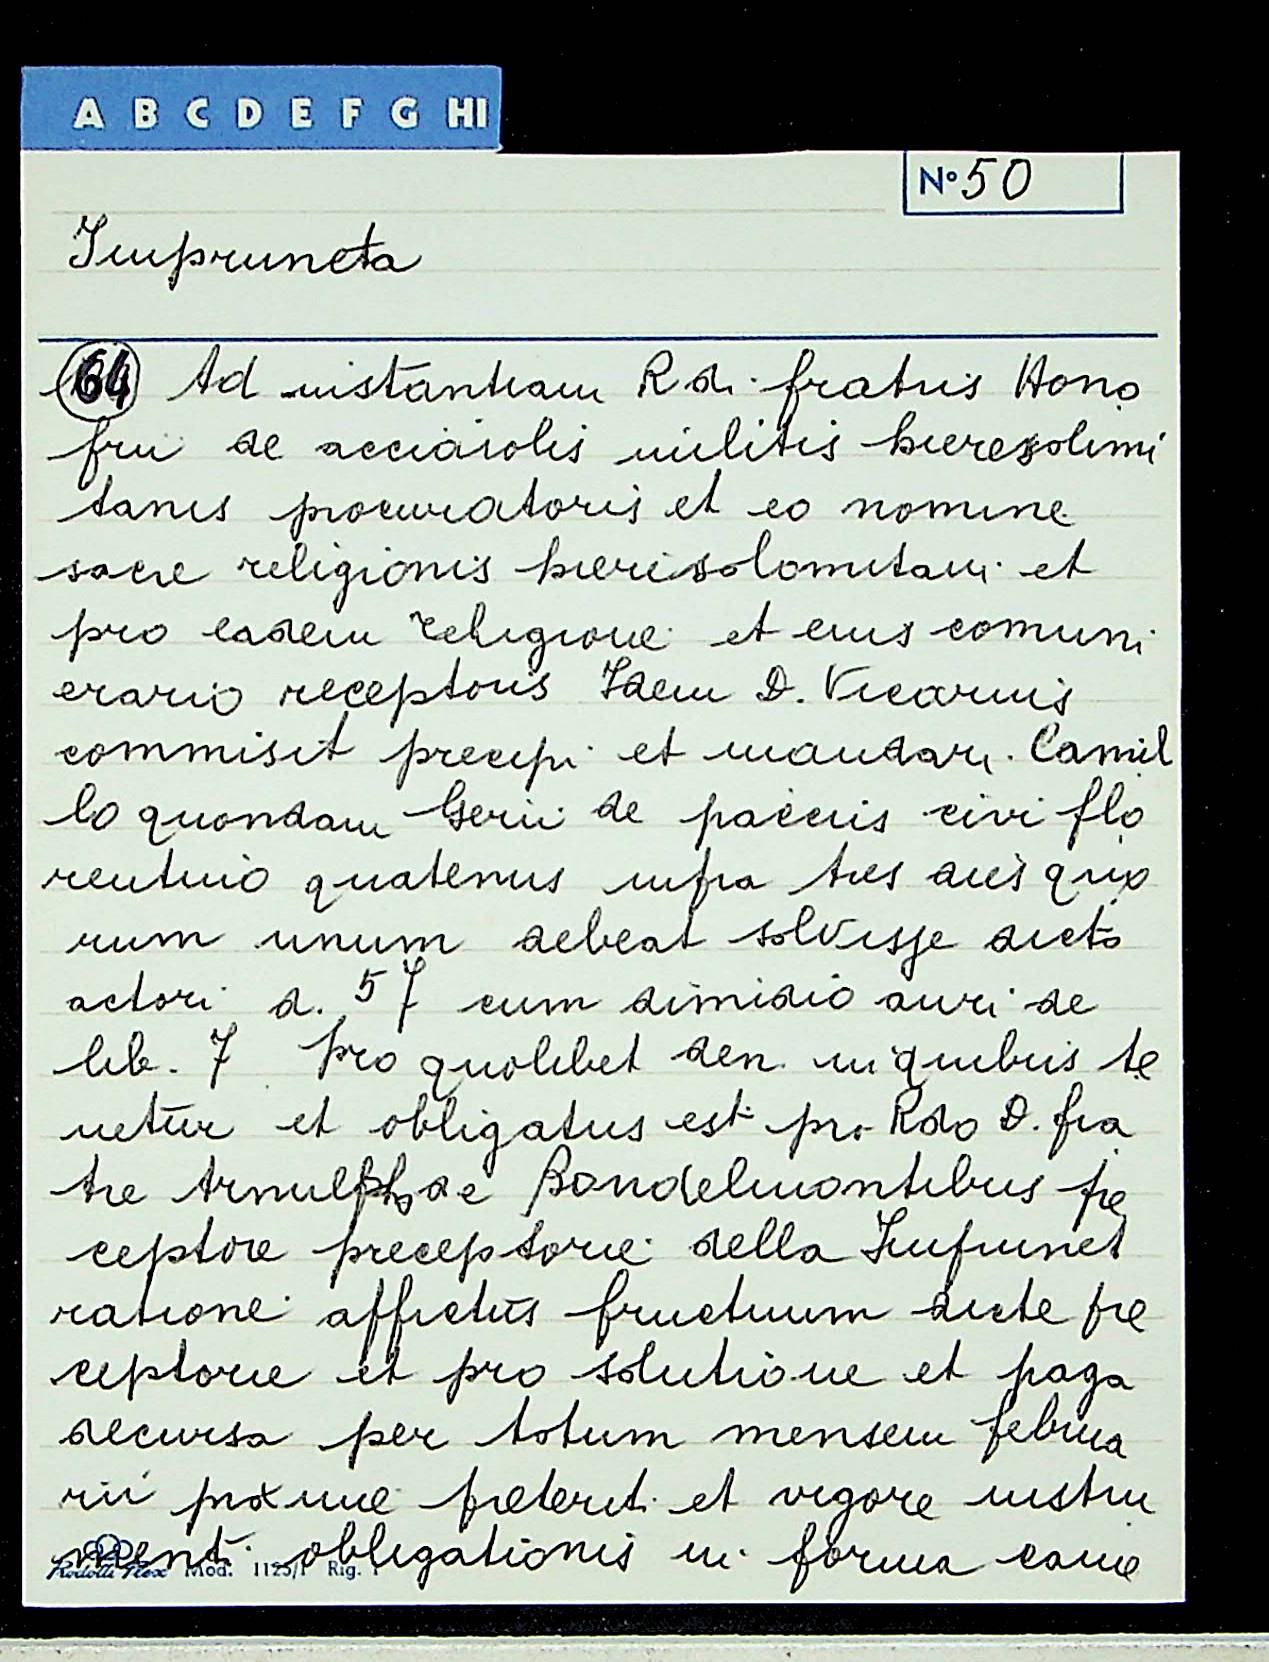 A B C D E F G HI
N° 50
Impruneta
64 Ad instantiam R.di fratris Hono
frii de acciaiolis militis hieresolimi
tanis procuratoris et eo nomine
sacre religionis hierisolomitani et
pro eadem religione et eius comuni
erario receptoris Idem D. Vicarius
commisit precipi et mandari Camil
lo quondam Gerii de paccis civi flo
rentino quatenus infra tres dies quo
rum unum debeat solvisse dicto
actori d. 57 cum dimidio auri de
lib. 7 pro quolibet den. in quibus te
netur et obligatus est pro Rdo D. fra
tre Arnulpho de Bondelmontibus pre
ceptore preceptorie della Imprunet
ratione affictus fructuum dicte pre
ceptorie et pro solutione et paga
decursa per totum mensem februa
rii proxime preterit. et vigore instru
ment. obligationis in forma came
Mod. 1125/P Rig. 1